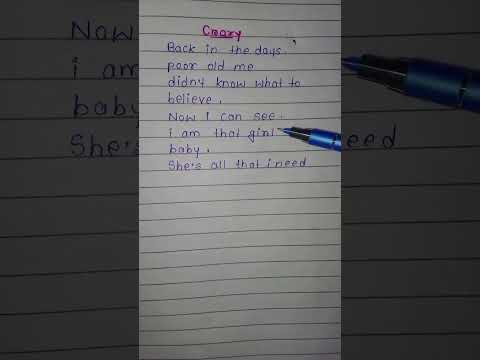 Crazy
Back in the days.
poor old me
didn4 know what to
believe.
Now i can see.
i am that girl
baby.
She's all that i need